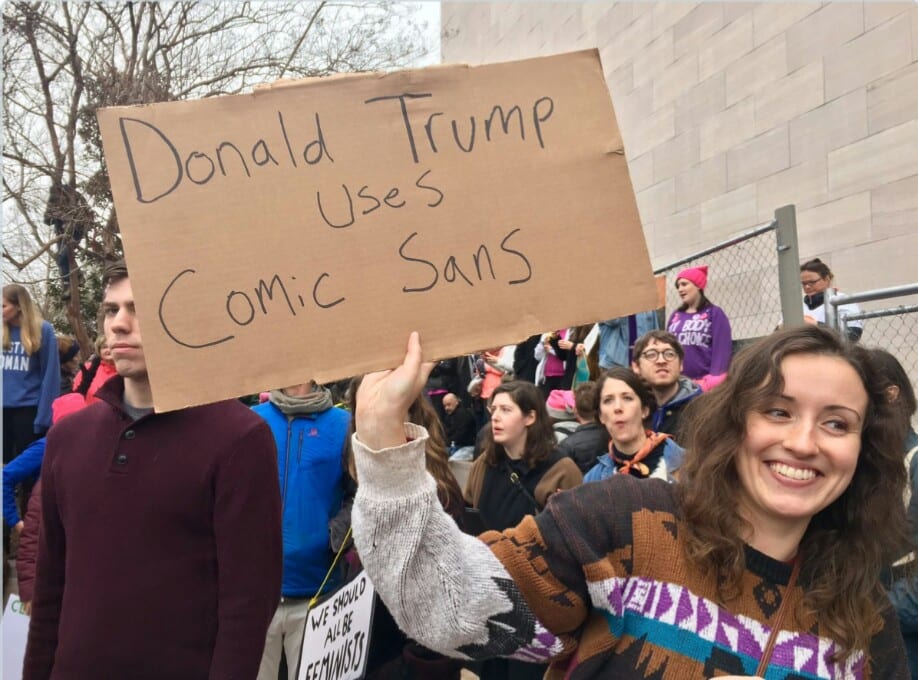 Donald Trump
uses
Comic Sans
BODY
CHOICE
WE SHOULD
ALL BE
FEMINISTS